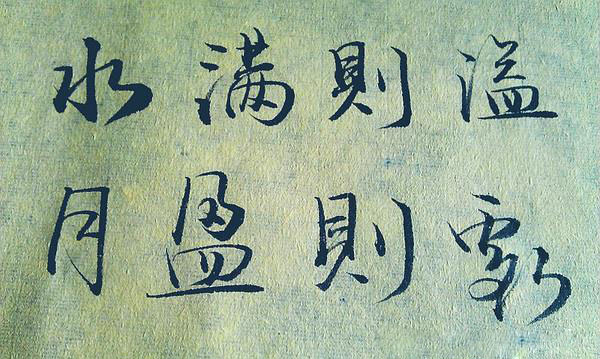 水滿則溢
月盈則虧